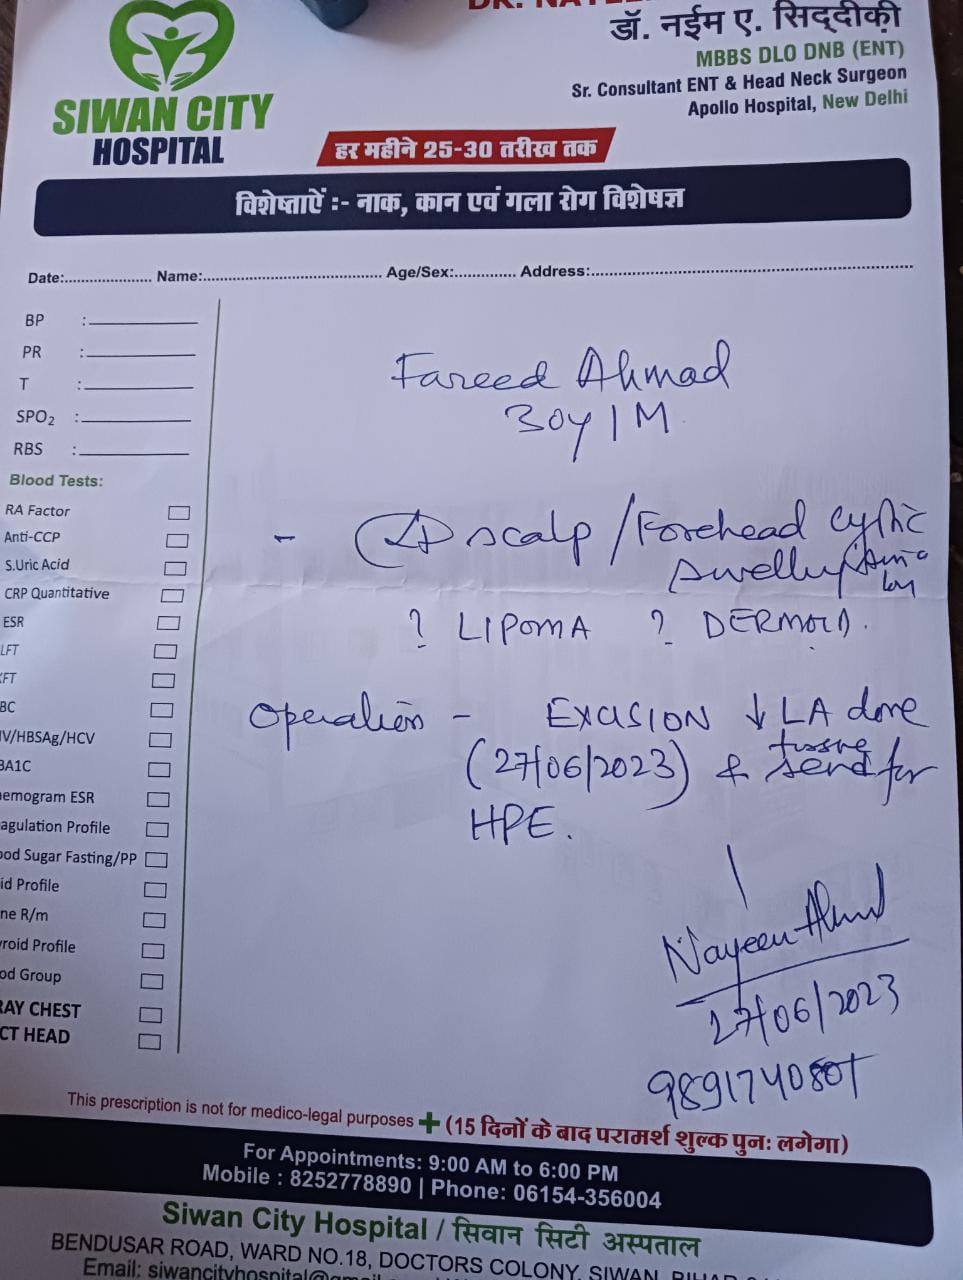 डॉ. नईम ए. सिद्दीकी
MBBS DLO DNB (ENT)
Sr. Consultant ENT & Head Neck Surgeon
Apollo Hospital, New Delhi
SIWAN CITY
HOSPITAL
हर महीने 25-30 तारीख तक
विशेष्ताऐं :- नाक, कान एवं गला रोग विशेषज्ञ
Date:..................... Name:.......................................... Age/Sex:............. Address:..........................................................................
BP :
PR :
T :
SPO2 :
RBS :
Blood Tests:
RA Factor
Anti-CCP
S.Uric Acid
CRP Quantitative
ESR
LFT
FT
BC
V/HBSAg/HCV
BA1C
emogram ESR
agulation Profile
ood Sugar Fasting/PP
id Profile
ne R/m
roid Profile
od Group
RAY CHEST
CT HEAD
Fareed Ahmad
30y/M
- scalp/Forehead cystic
swelling
? LIPOMA ? DERMOID.
Operation - EXCISION ↓ LA done
(27/06/2023) & tissue
send for
HPE.
Nayeem Ahmd
27/06/2023
This prescription is not for medico-legal purposes + (15 दिनों के बाद परामर्श शुल्क पुनः लगेगा)
For Appointments: 9:00 AM to 6:00 PM
Mobile : 8252778890 | Phone: 06154-356004
Siwan City Hospital / सिवान सिटी अस्पताल
BENDUSAR ROAD, WARD NO.18, DOCTORS COLONY, SIWAN,
Email: